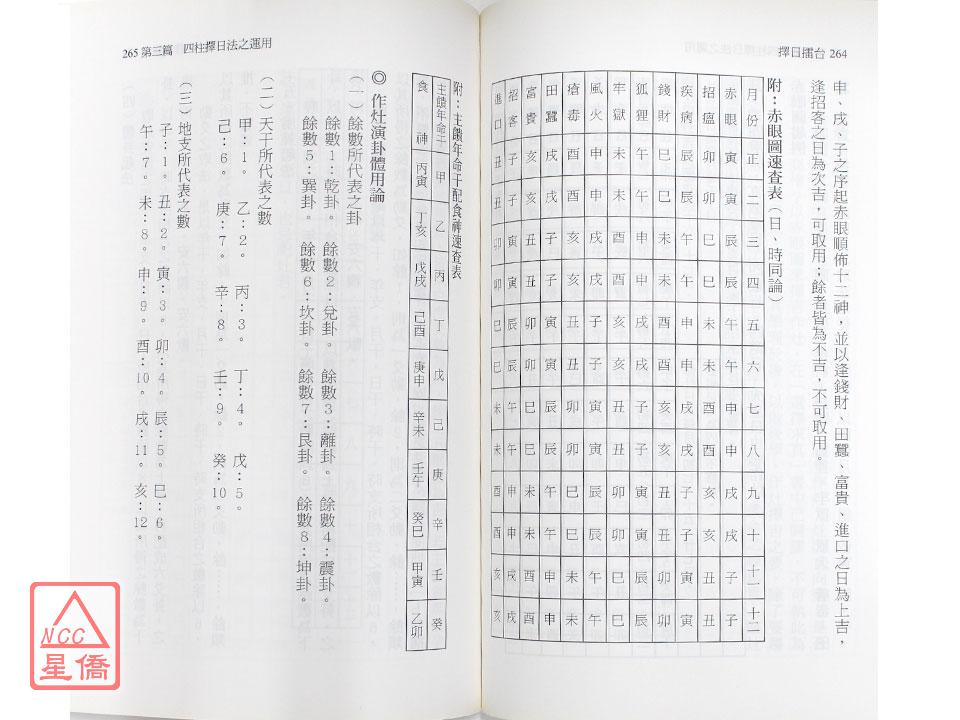 擇日擂台 264
申、戌、子之序起赤眼順佈十二神，並以逢錢財、田蠶、富貴、進口之日為上吉，
逢招客之日為次吉，可取用；餘者皆為不吉，不可取用。
附：赤眼圖速查表（日、時同論）
月份 正 二 三 四 五 六 七 八 九 十 十一 十二
赤眼 寅 寅 辰 辰 午 午 申 申 戌 戌 子 子
招瘟 卯 卯 巳 巳 未 未 酉 酉 亥 亥 丑 丑
疾病 辰 辰 午 午 申 申 戌 戌 子 子 寅 寅
錢財 巳 巳 未 未 酉 酉 亥 亥 丑 丑 卯 卯
狐狸 午 午 申 申 戌 戌 子 子 寅 寅 辰 辰
牢獄 未 未 酉 酉 亥 亥 丑 丑 卯 卯 巳 巳
風火 申 申 戌 戌 子 子 寅 寅 辰 辰 午 午
瘡毒 酉 酉 亥 亥 丑 丑 卯 卯 巳 巳 未 未
田蠶 戌 戌 子 子 寅 寅 辰 辰 午 午 申 申
富貴 亥 亥 丑 丑 卯 卯 巳 巳 未 未 酉 酉
招客 子 子 寅 寅 辰 辰 午 午 申 申 戌 戌
進口 丑 丑 卯 卯 巳 巳 未 未 酉 酉 亥 亥
265 第三篇 四柱擇日法之運用
附：主饋年命干配食神速查表
主饋年命干 甲 乙 丙 丁 戊 己 庚 辛 壬 癸
食神 丙寅 丁亥 戊戌 己酉 庚申 辛未 壬午 癸巳 甲寅 乙卯
◎ 作灶演卦體用論
（一）餘數所代表之卦
餘數1：乾卦。 餘數2：兌卦。 餘數3：離卦。 餘數4：震卦。
餘數5：巽卦。 餘數6：坎卦。 餘數7：艮卦。 餘數8：坤卦。
（二）天干所代表之數
甲：1。 乙：2。 丙：3。 丁：4。 戊：5。
己：6。 庚：7。 辛：8。 壬：9。 癸：10。
（三）地支所代表之數
子：1。 丑：2。 寅：3。 卯：4。 辰：5。 巳：6。
午：7。 未：8。 申：9。 酉：10。 戌：11。 亥：12。
NCC
星僑